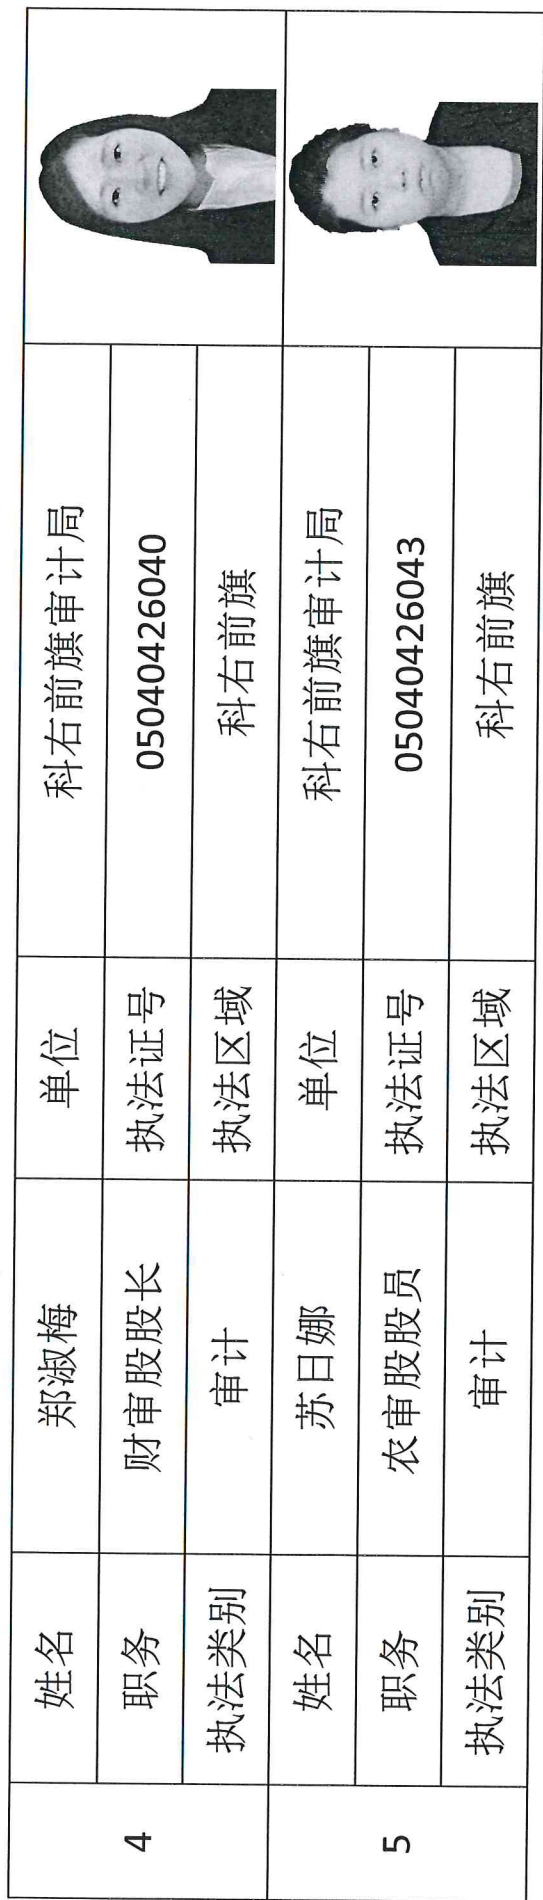 4 姓名 郑淑梅 单位 科右前旗审计局
职务 财审股股长 执法证号 05040426040
执法类别 审计 执法区域 科右前旗
5 姓名 苏日娜 单位 科右前旗审计局
职务 农审股股员 执法证号 05040426043
执法类别 审计 执法区域 科右前旗